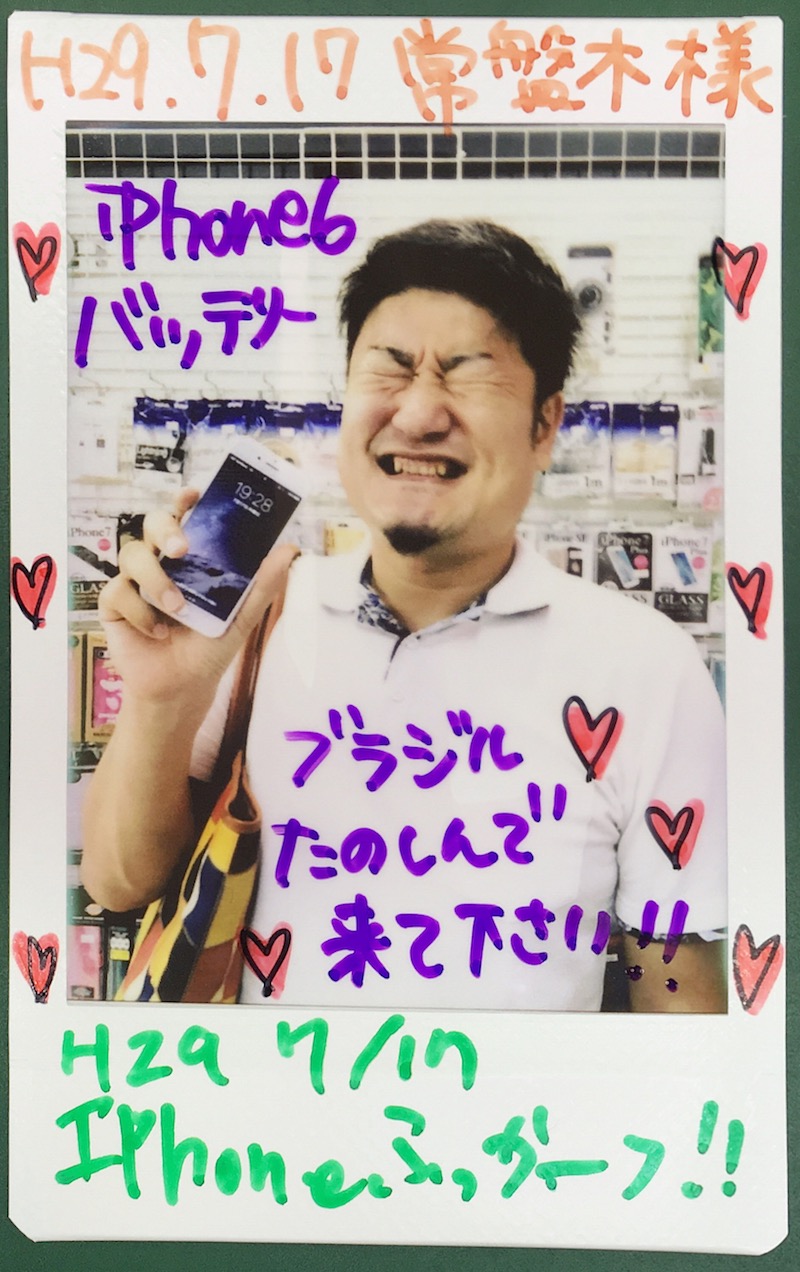 H29.7.17 常盤木様
iPhone6
バッテリー
19:28
iPhone7
iPhone SE
iPhone7
Plus
iPhone7
GLASS
GLASS
1m
1m
ブラジル
たのしんで
来て下さい!!
H29 7/17
IPhone.ふっかーつ!!